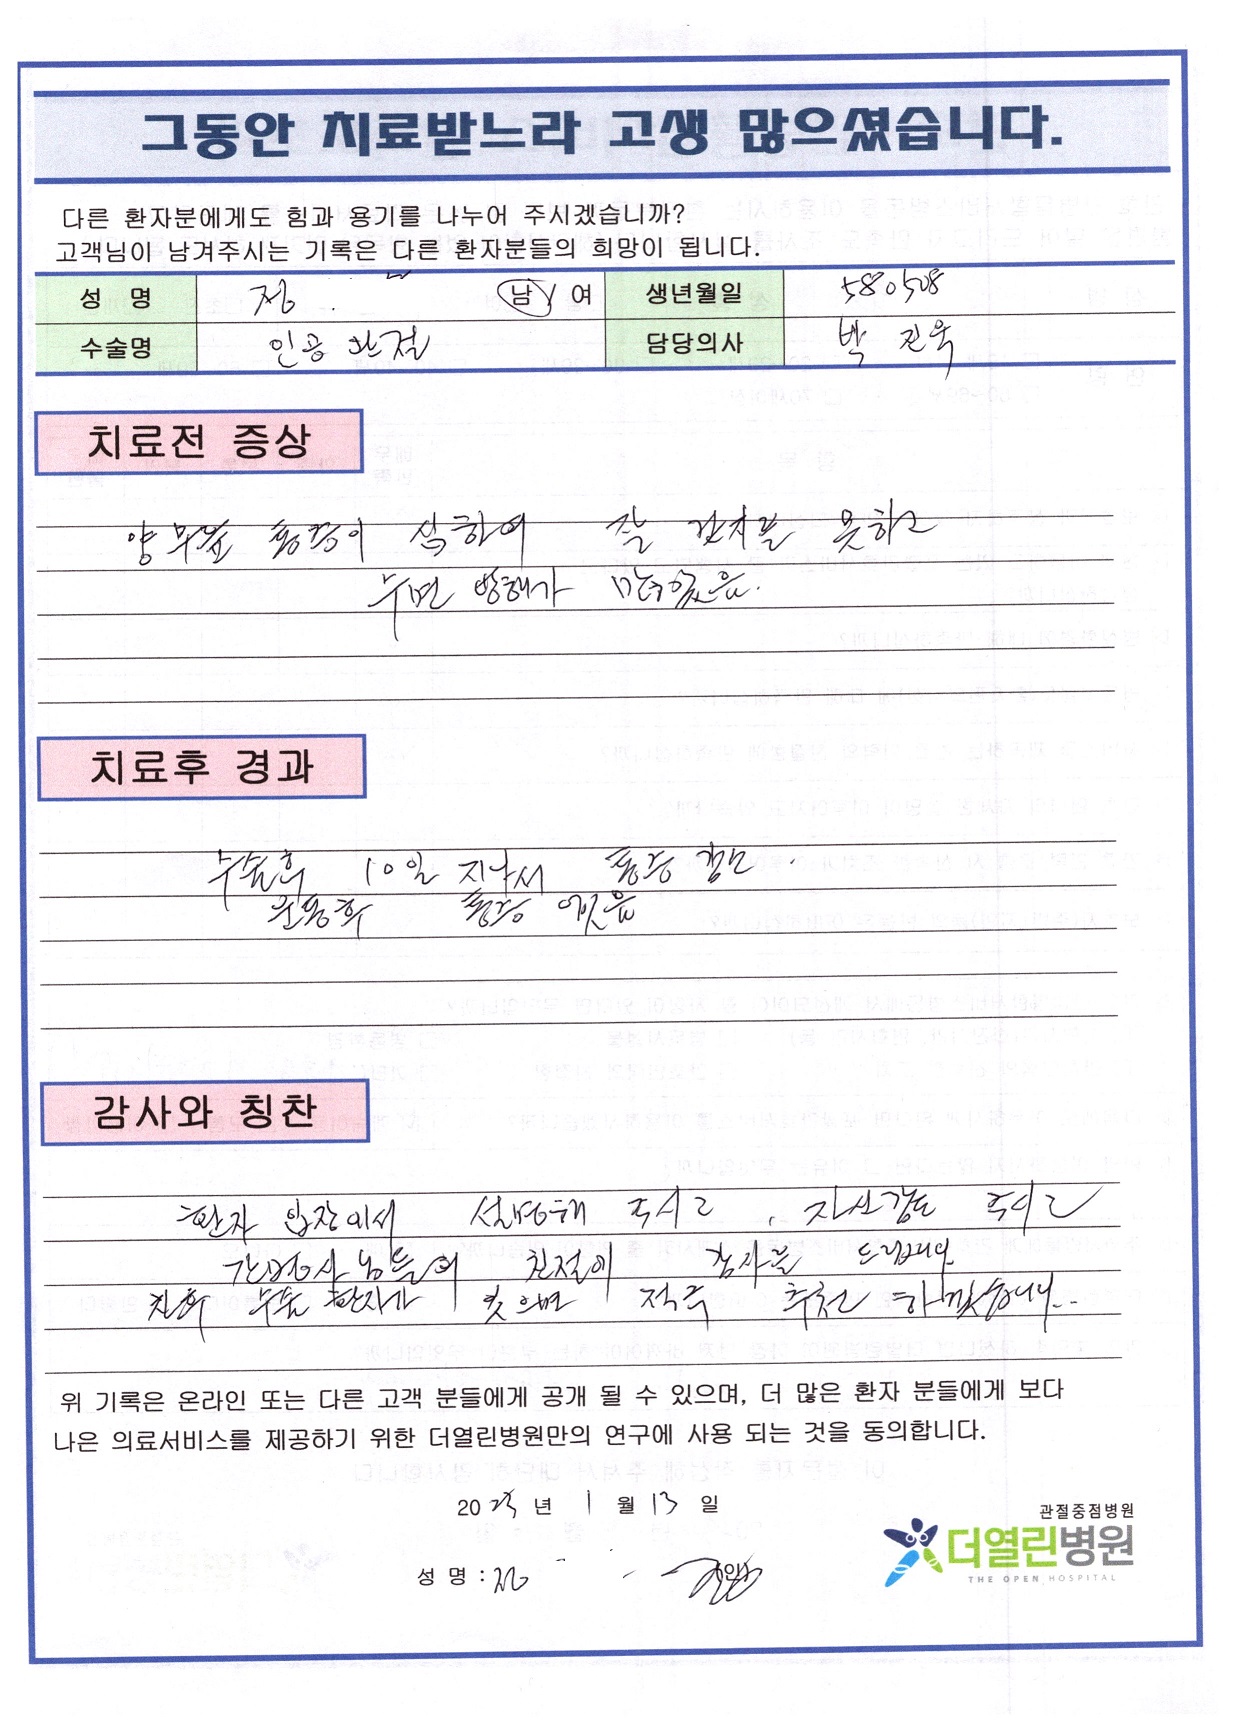 그동안 치료받느라 고생 많으셨습니다.
다른 환자분에게도 힘과 용기를 나누어 주시겠습니까?
고객님이 남겨주시는 기록은 다른 환자분들의 희망이 됩니다.
성 명 정 남 / 여 생년월일 580508
수술명 인공 관절 담당의사 박 진욱
치료전 증상
양 무릎 통증이 심하여 잘 걷지를 못하고
수면 방해가 많었음.
치료후 경과
수술후 10일 지나서 통증 감소
운동후 통증 있음
감사와 칭찬
환자 입장에서 설명해 주시고, 자신감도 주시고
간호사님들의 친절에 감사를 드립니다.
차후 수술 환자가 있으면 적극 추천 하겠습니다...
위 기록은 온라인 또는 다른 고객 분들에게 공개 될 수 있으며, 더 많은 환자 분들에게 보다
나은 의료서비스를 제공하기 위한 더열린병원만의 연구에 사용 되는 것을 동의합니다.
2023 년 1 월 13 일
성 명 : 정 (인)
관절중점병원
더열린병원
THE OPEN HOSPITAL